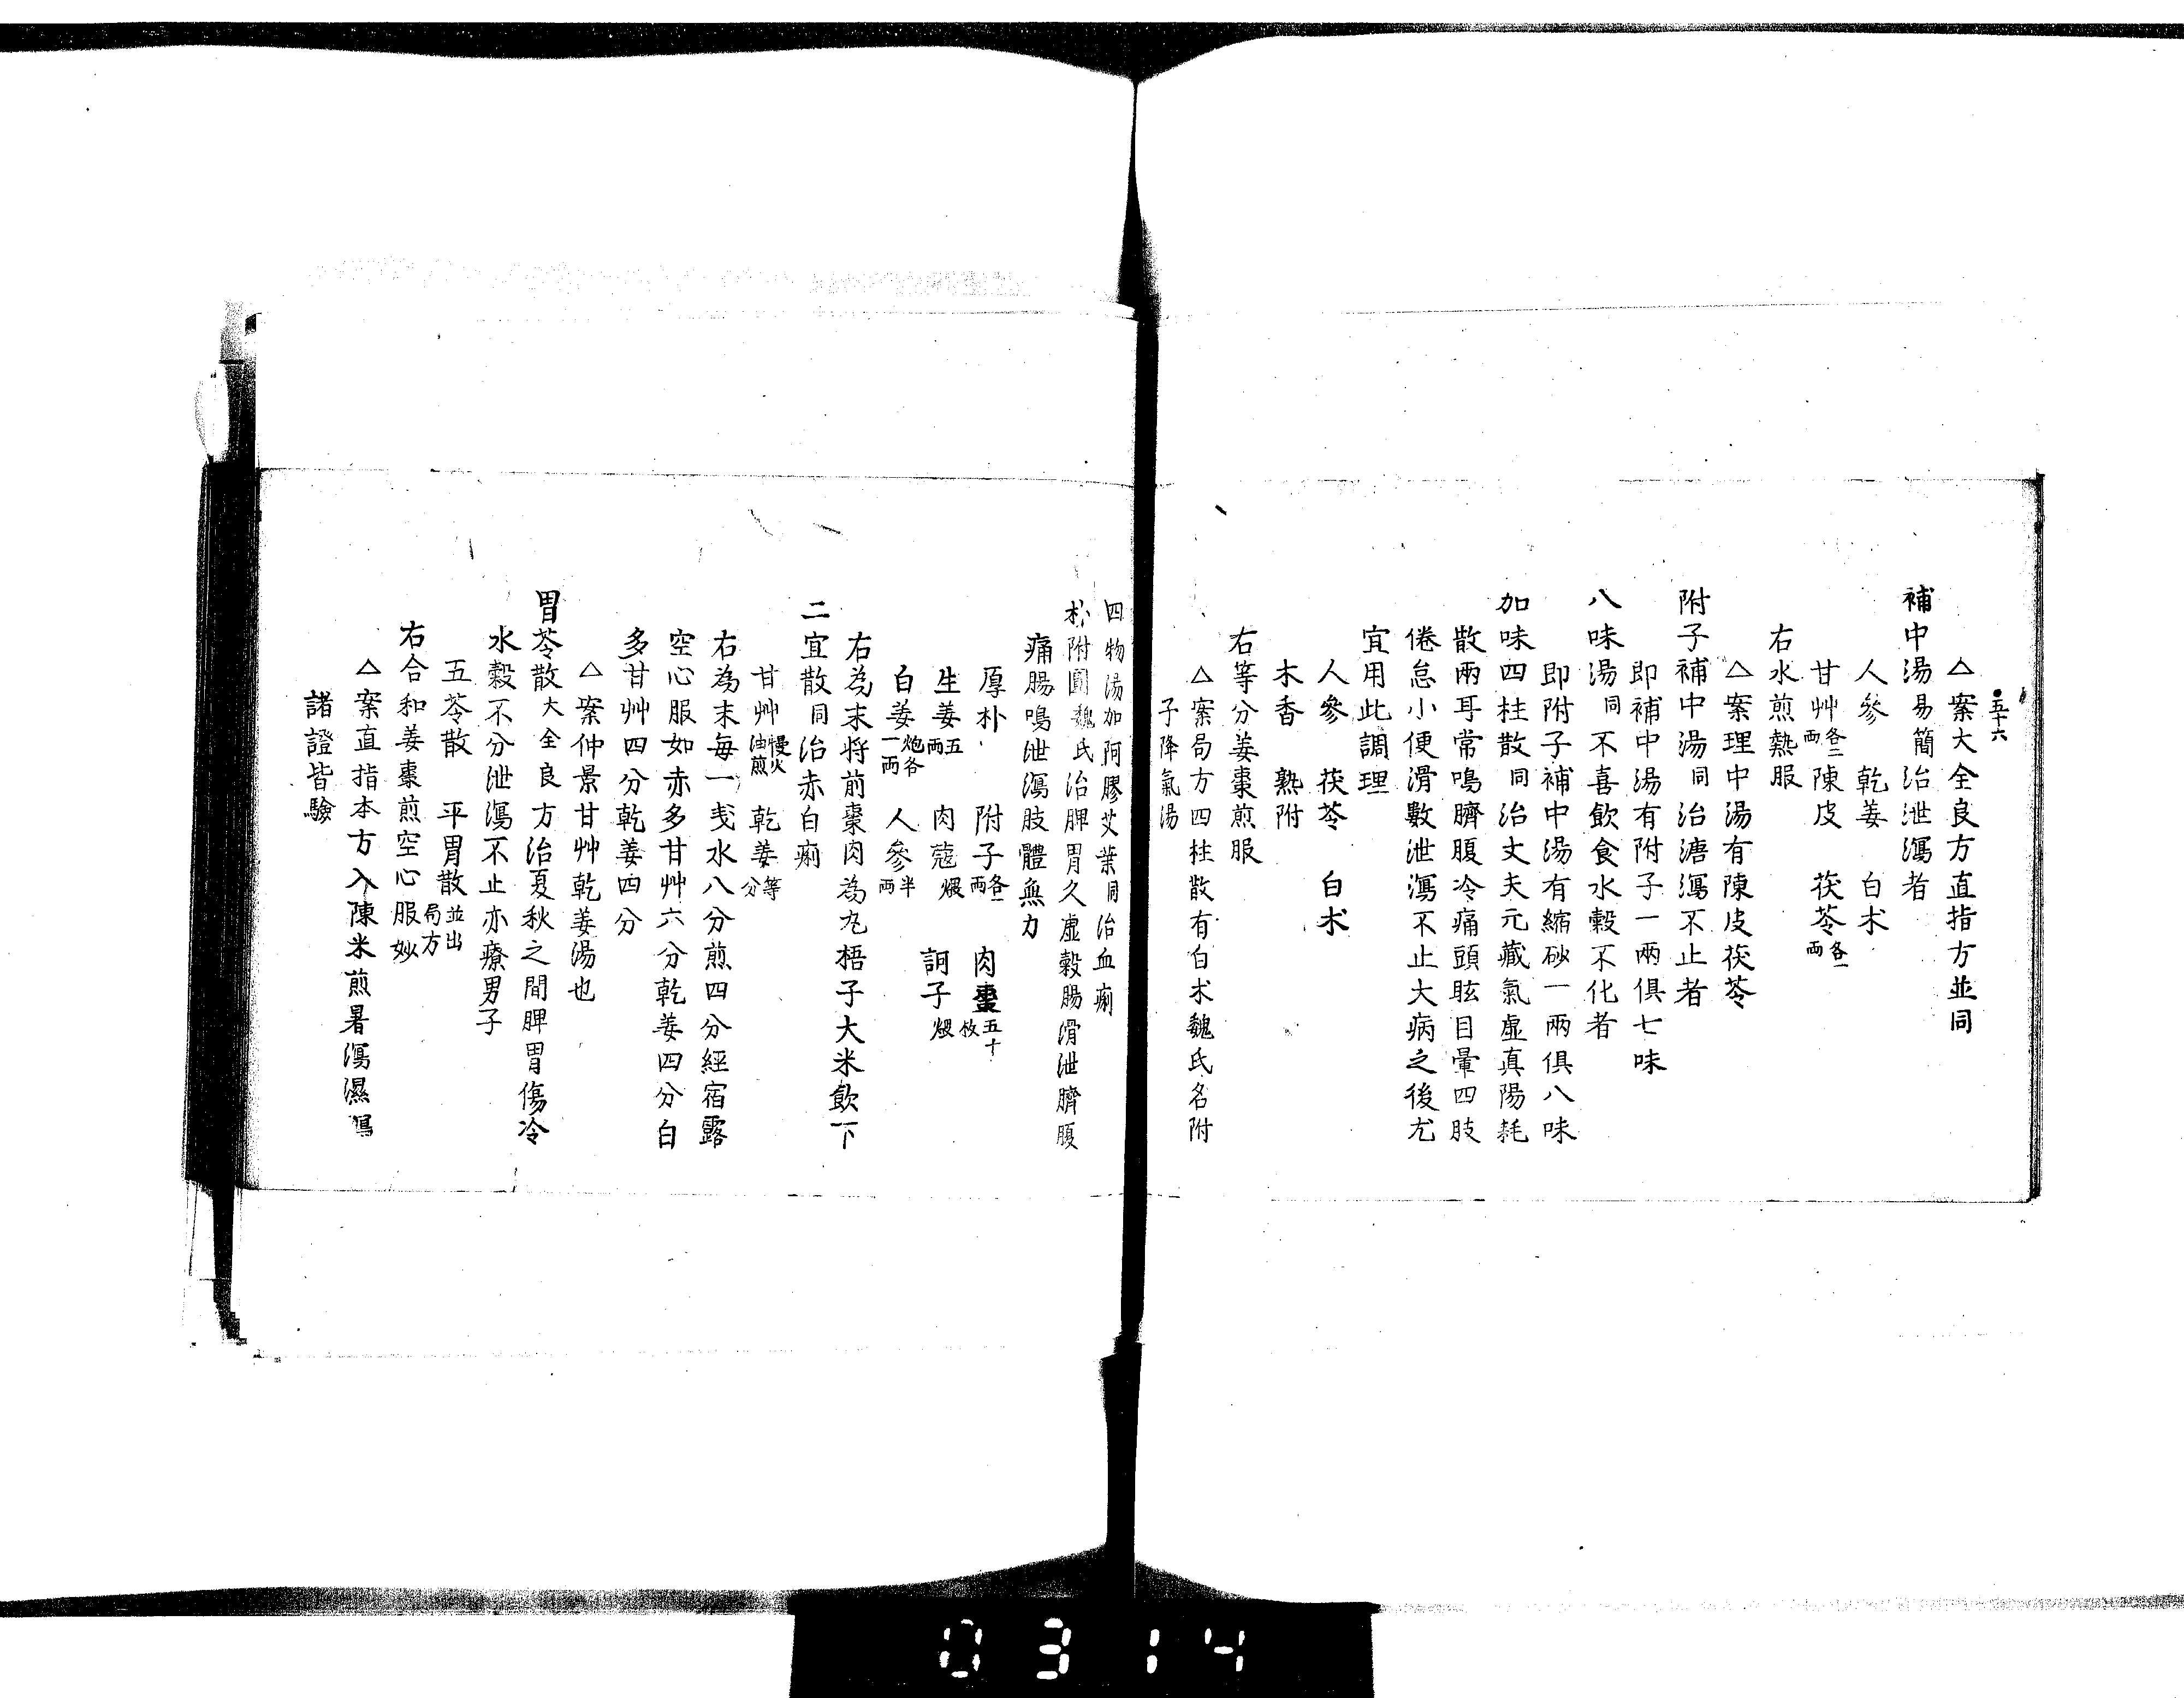 五十六
△案大全良方直指方並同
補中湯易簡治泄瀉者
人參　乾姜　白朮
甘艸各二両　陳皮　茯苓各一両
右水煎熱服
△案理中湯有陳皮茯苓
附子補中湯同治溏瀉不止者
即補中湯有附子一兩俱七味
八味湯同不喜飲食水穀不化者
即附子補中湯有縮砂一兩俱八味
加味四柱散同治丈夫元藏氣虛真陽耗
散兩耳常鳴臍腹冷痛頭眩目暈四肢
倦怠小便滑數泄瀉不止大病之後尤
宜用此調理
人參　茯苓　白朮
木香　熟附
右等分姜棗煎服
△案局方四柱散有白朮魏氏名附
子降氣湯
四物湯加阿膠艾葉同治血痢
朴附圓魏氏治脾胃久虛穀腸滑泄臍腹
痛腸鳴泄瀉肢體無力
厚朴　附子各一両　肉棗五十枚
生姜五両　肉蔻煨　訶子煨
白姜炮各一両　人參半両
右為末将前棗肉為丸梧子大米飲下
二宜散同治赤白痢
甘艸慢火油煎　乾姜等分
右為末每一戔水八分煎四分經宿露
空心服如赤多甘艸六分乾姜四分白
多甘艸四分乾姜四分
△案仲景甘艸乾姜湯也
胃苓散大全良方治夏秋之間脾胃傷冷
水穀不分泄瀉不止亦療男子
五苓散　平胃散並出局方
右合和姜棗煎空心服妙
△案直指本方入陳米煎暑瀉濕瀉
諸證皆驗
0314